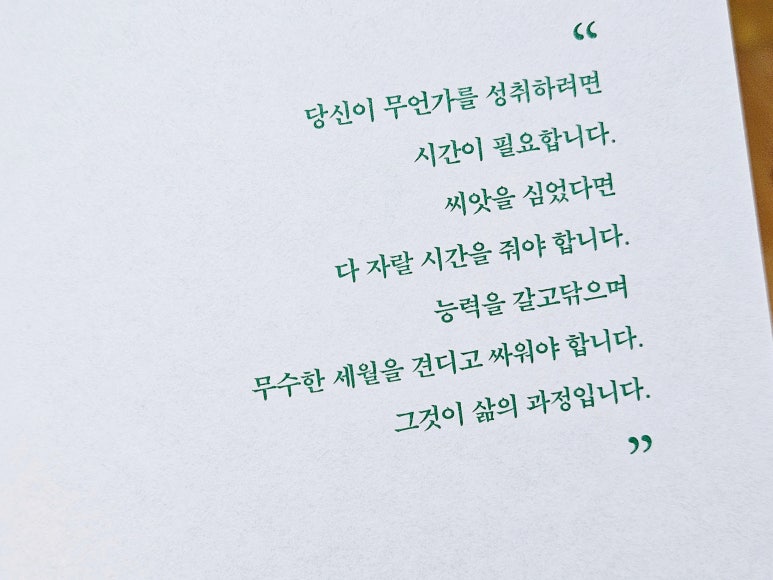 “
당신이 무언가를 성취하려면
시간이 필요합니다.
씨앗을 심었다면
다 자랄 시간을 줘야 합니다.
능력을 갈고닦으며
무수한 세월을 견디고 싸워야 합니다.
그것이 삶의 과정입니다.
”